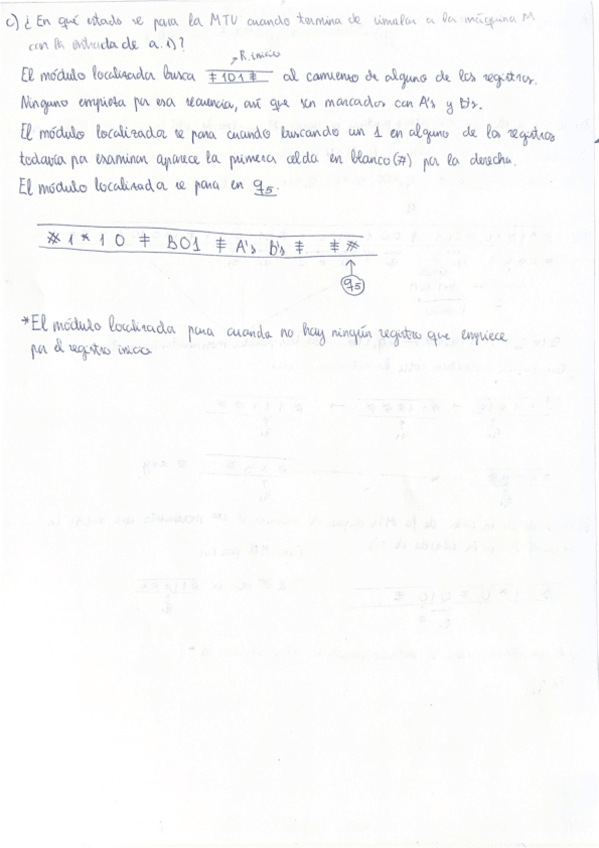 c) ¿En qué estado se para la MTU cuando termina de simular a la máquina M
con la entrada de a.1)?
R. inicio
El módulo localizador busca ≠101≠ al comienzo de alguno de los registros.
Ninguno empieza por esa secuencia, así que son marcados con A's y B's.
El módulo localizador se para cuando buscando un 1 en alguno de los registros
todavía por examinar aparece la primera celda en blanco (#) por la derecha.
El módulo localizador se para en q5.
※ 1 * 1 0 ≠ B01 ≠ A's b's ≠ . ≠ ※
q5
*El módulo localizador para cuando no hay ningún registro que empiece
por el registro inicio